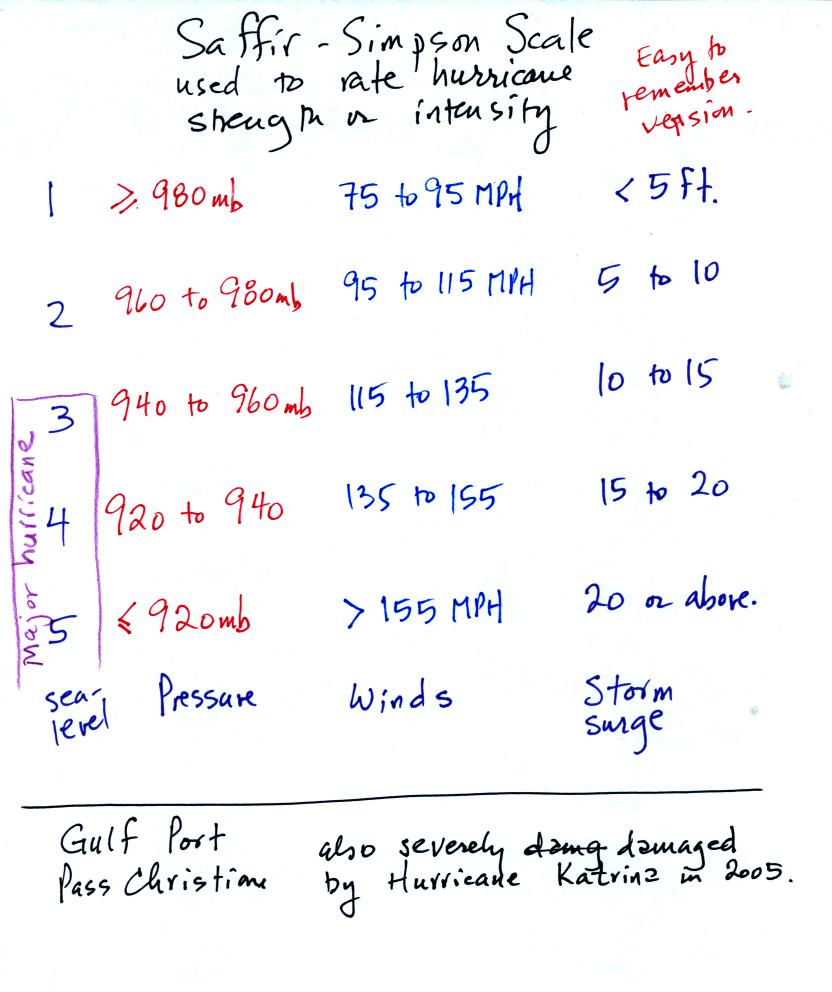 Saffir - Simpson Scale
used to rate hurricane
strength or intensity
Easy to
remember
version.
1 ≥ 980 mb 75 to 95 MPH < 5 ft.
2 960 to 980 mb 95 to 115 MPH 5 to 10
3 940 to 960 mb 115 to 135 10 to 15
4 920 to 940 135 to 155 15 to 20
5 ≤ 920 mb > 155 MPH 20 or above.
Major hurricane
sea-
level Pressure Winds Storm
surge
Gulf Port also severely damg damaged
Pass Christian by Hurricane Katrina in 2005.